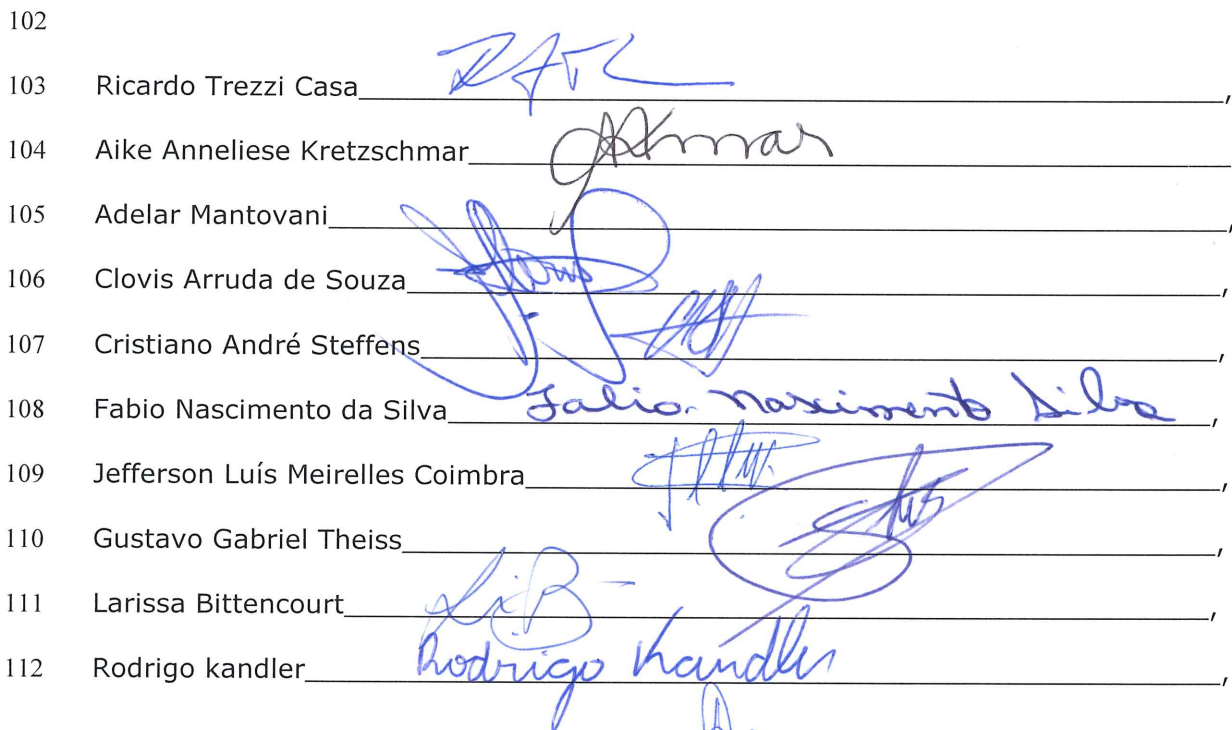 102
103 Ricardo Trezzi Casa,
104 Aike Anneliese Kretzschmar
105 Adelar Mantovani,
106 Clovis Arruda de Souza,
107 Cristiano André Steffens,
108 Fabio Nascimento da Silva Fabio Nascimento Silva,
109 Jefferson Luís Meirelles Coimbra,
110 Gustavo Gabriel Theiss,
111 Larissa Bittencourt,
112 Rodrigo kandler Rodrigo Kandler,